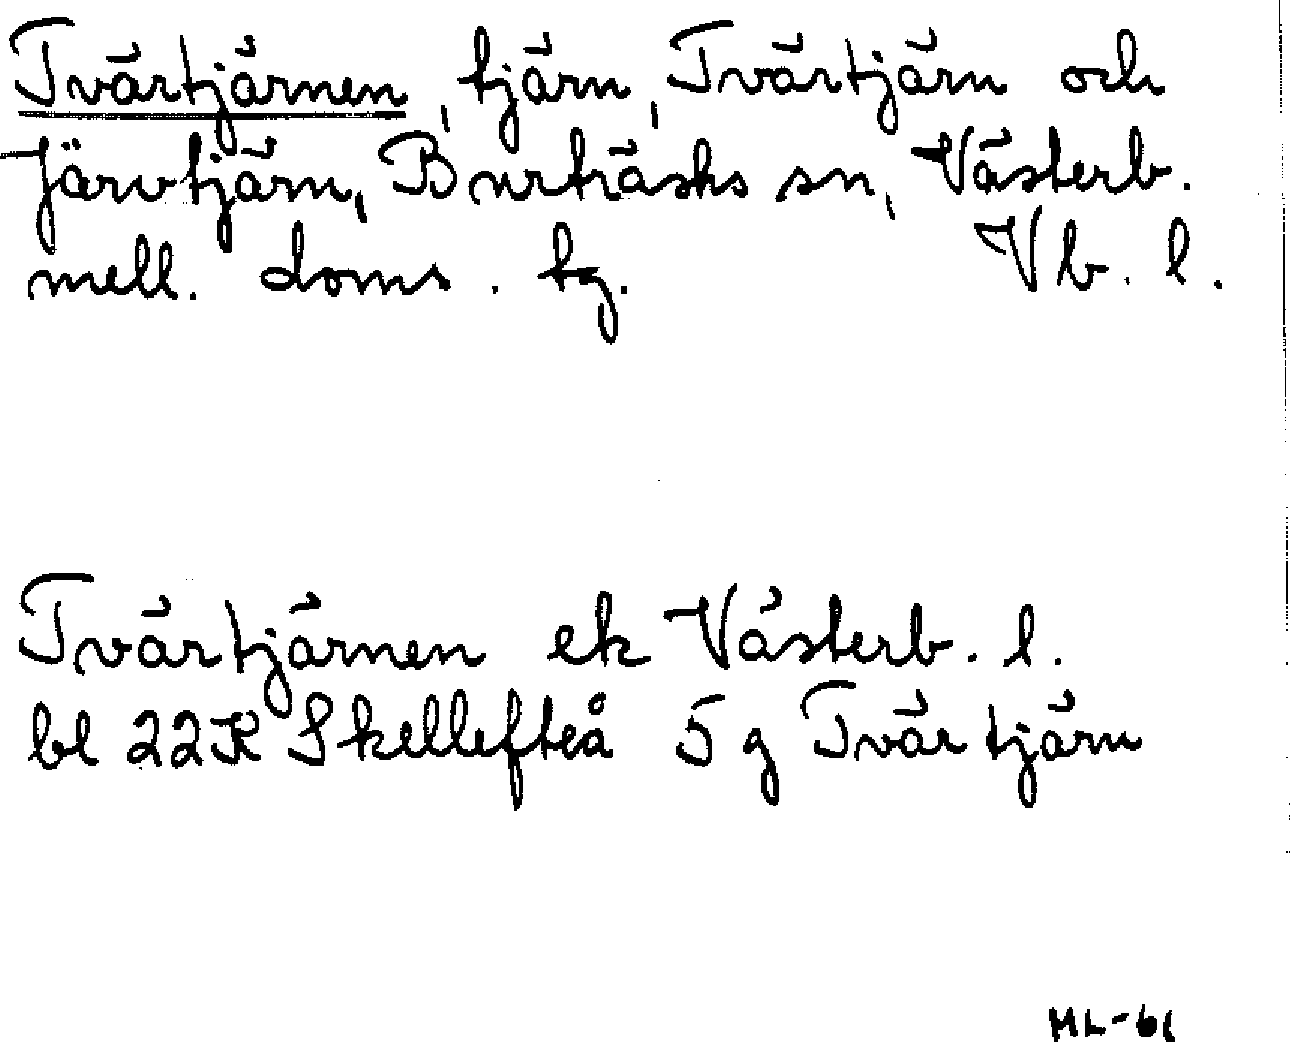 Tvärtjärnen, tjärn, Tvärtjärn och
Järvtjärn, Burträsks sn, Västerb.
mell. doms. tg. Vb. l.
Tvärtjärnen ek Västerb. l.
bl 22K Skellefteå 5 g Tvärtjärn
ML-61